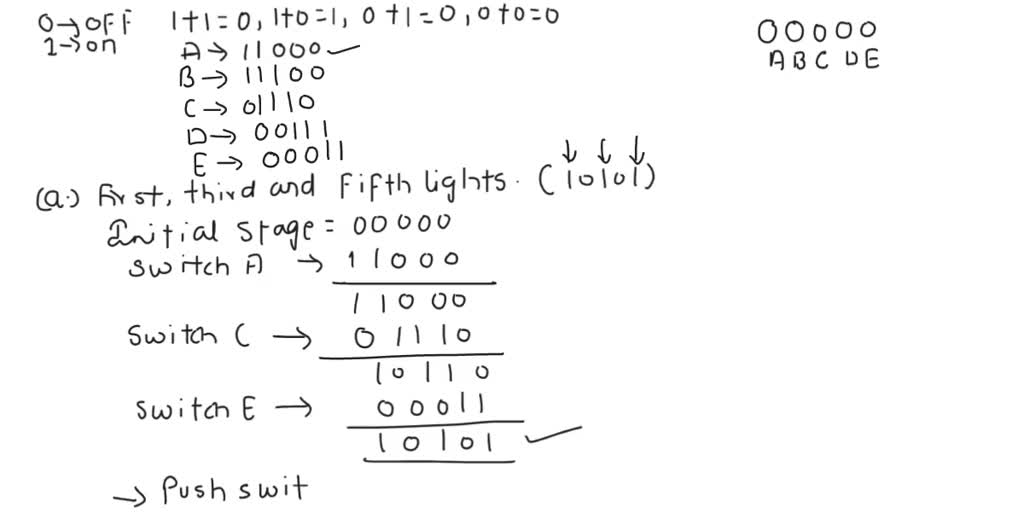 0→OFF 1+1=0, 1+0=1, 0+1=0, 0+0=0
1→on
00000
A B C D E
A→ 11000 ✓
B→ 11100
C→ 01110
D→ 00111
E→ 00011
(a.) First, third and Fifth lights. (10101)
Initial stage = 00000
Switch A → 11000
11000
Switch C → 01110
10110
Switch E → 00011
10101 ✓
→ Push swit